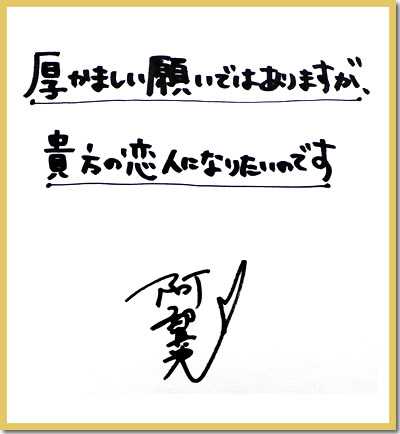 厚かましい願いではありますが、
貴方の恋人になりたいのです